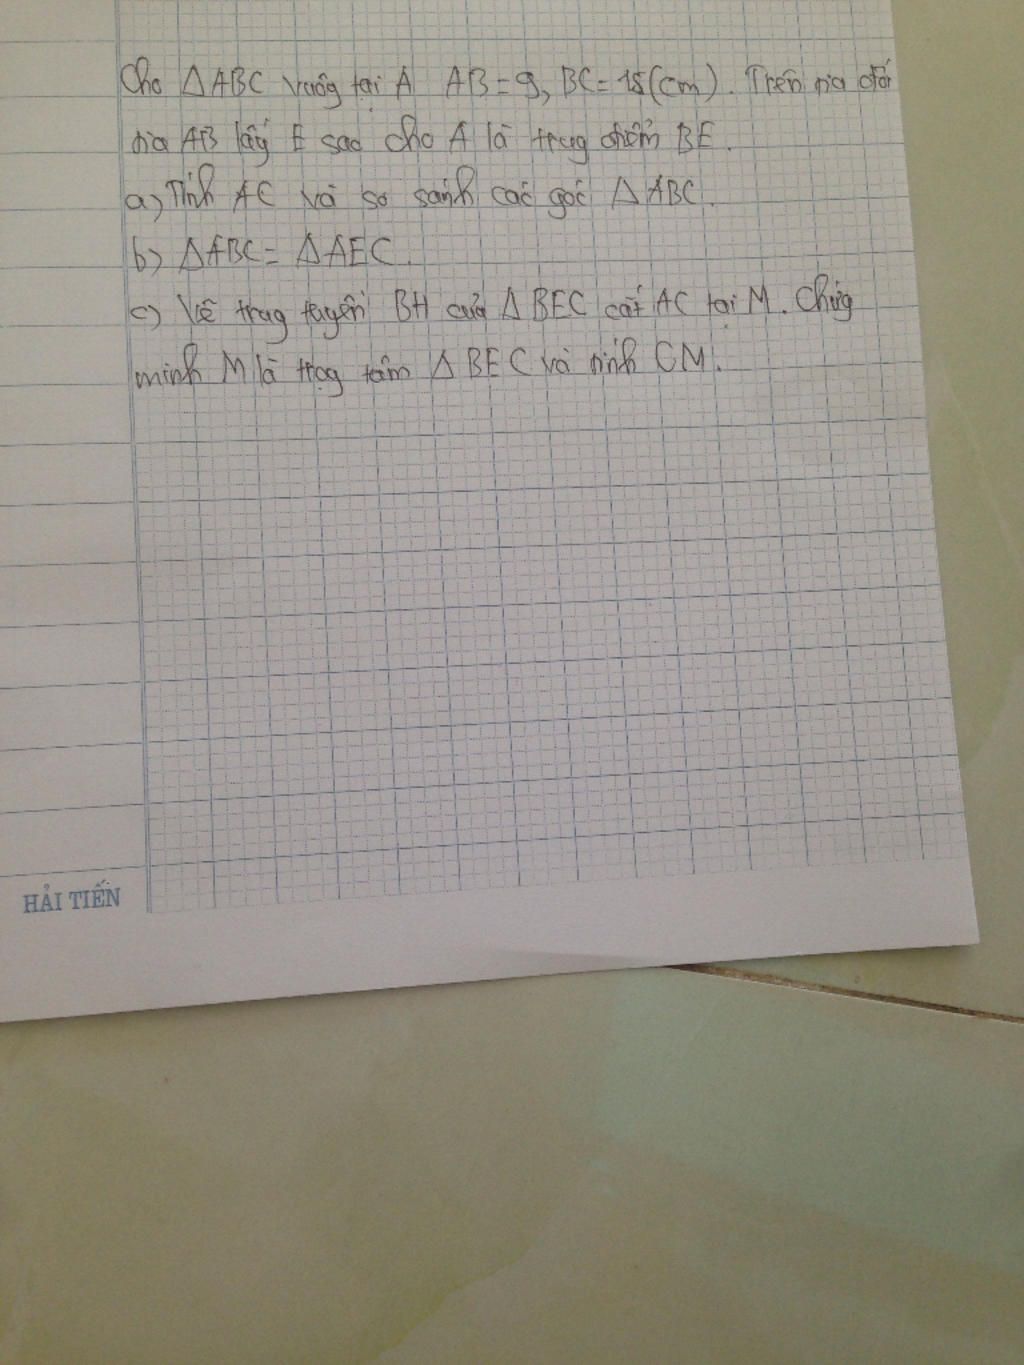 Cho △ABC vuôg tại A AB = 9, BC = 15 (cm). Trên tia đối
tia AB lấy E sao cho A là trug điểm BE.
a) Tính AC và so sánh các góc △ABC.
b) △ABC = △AEC.
c) Vẽ trug tuyến BH của △BEC cắt AC tại M. Chứg
minh M là trọg tâm △BEC và tính CM.
HẢI TIẾN